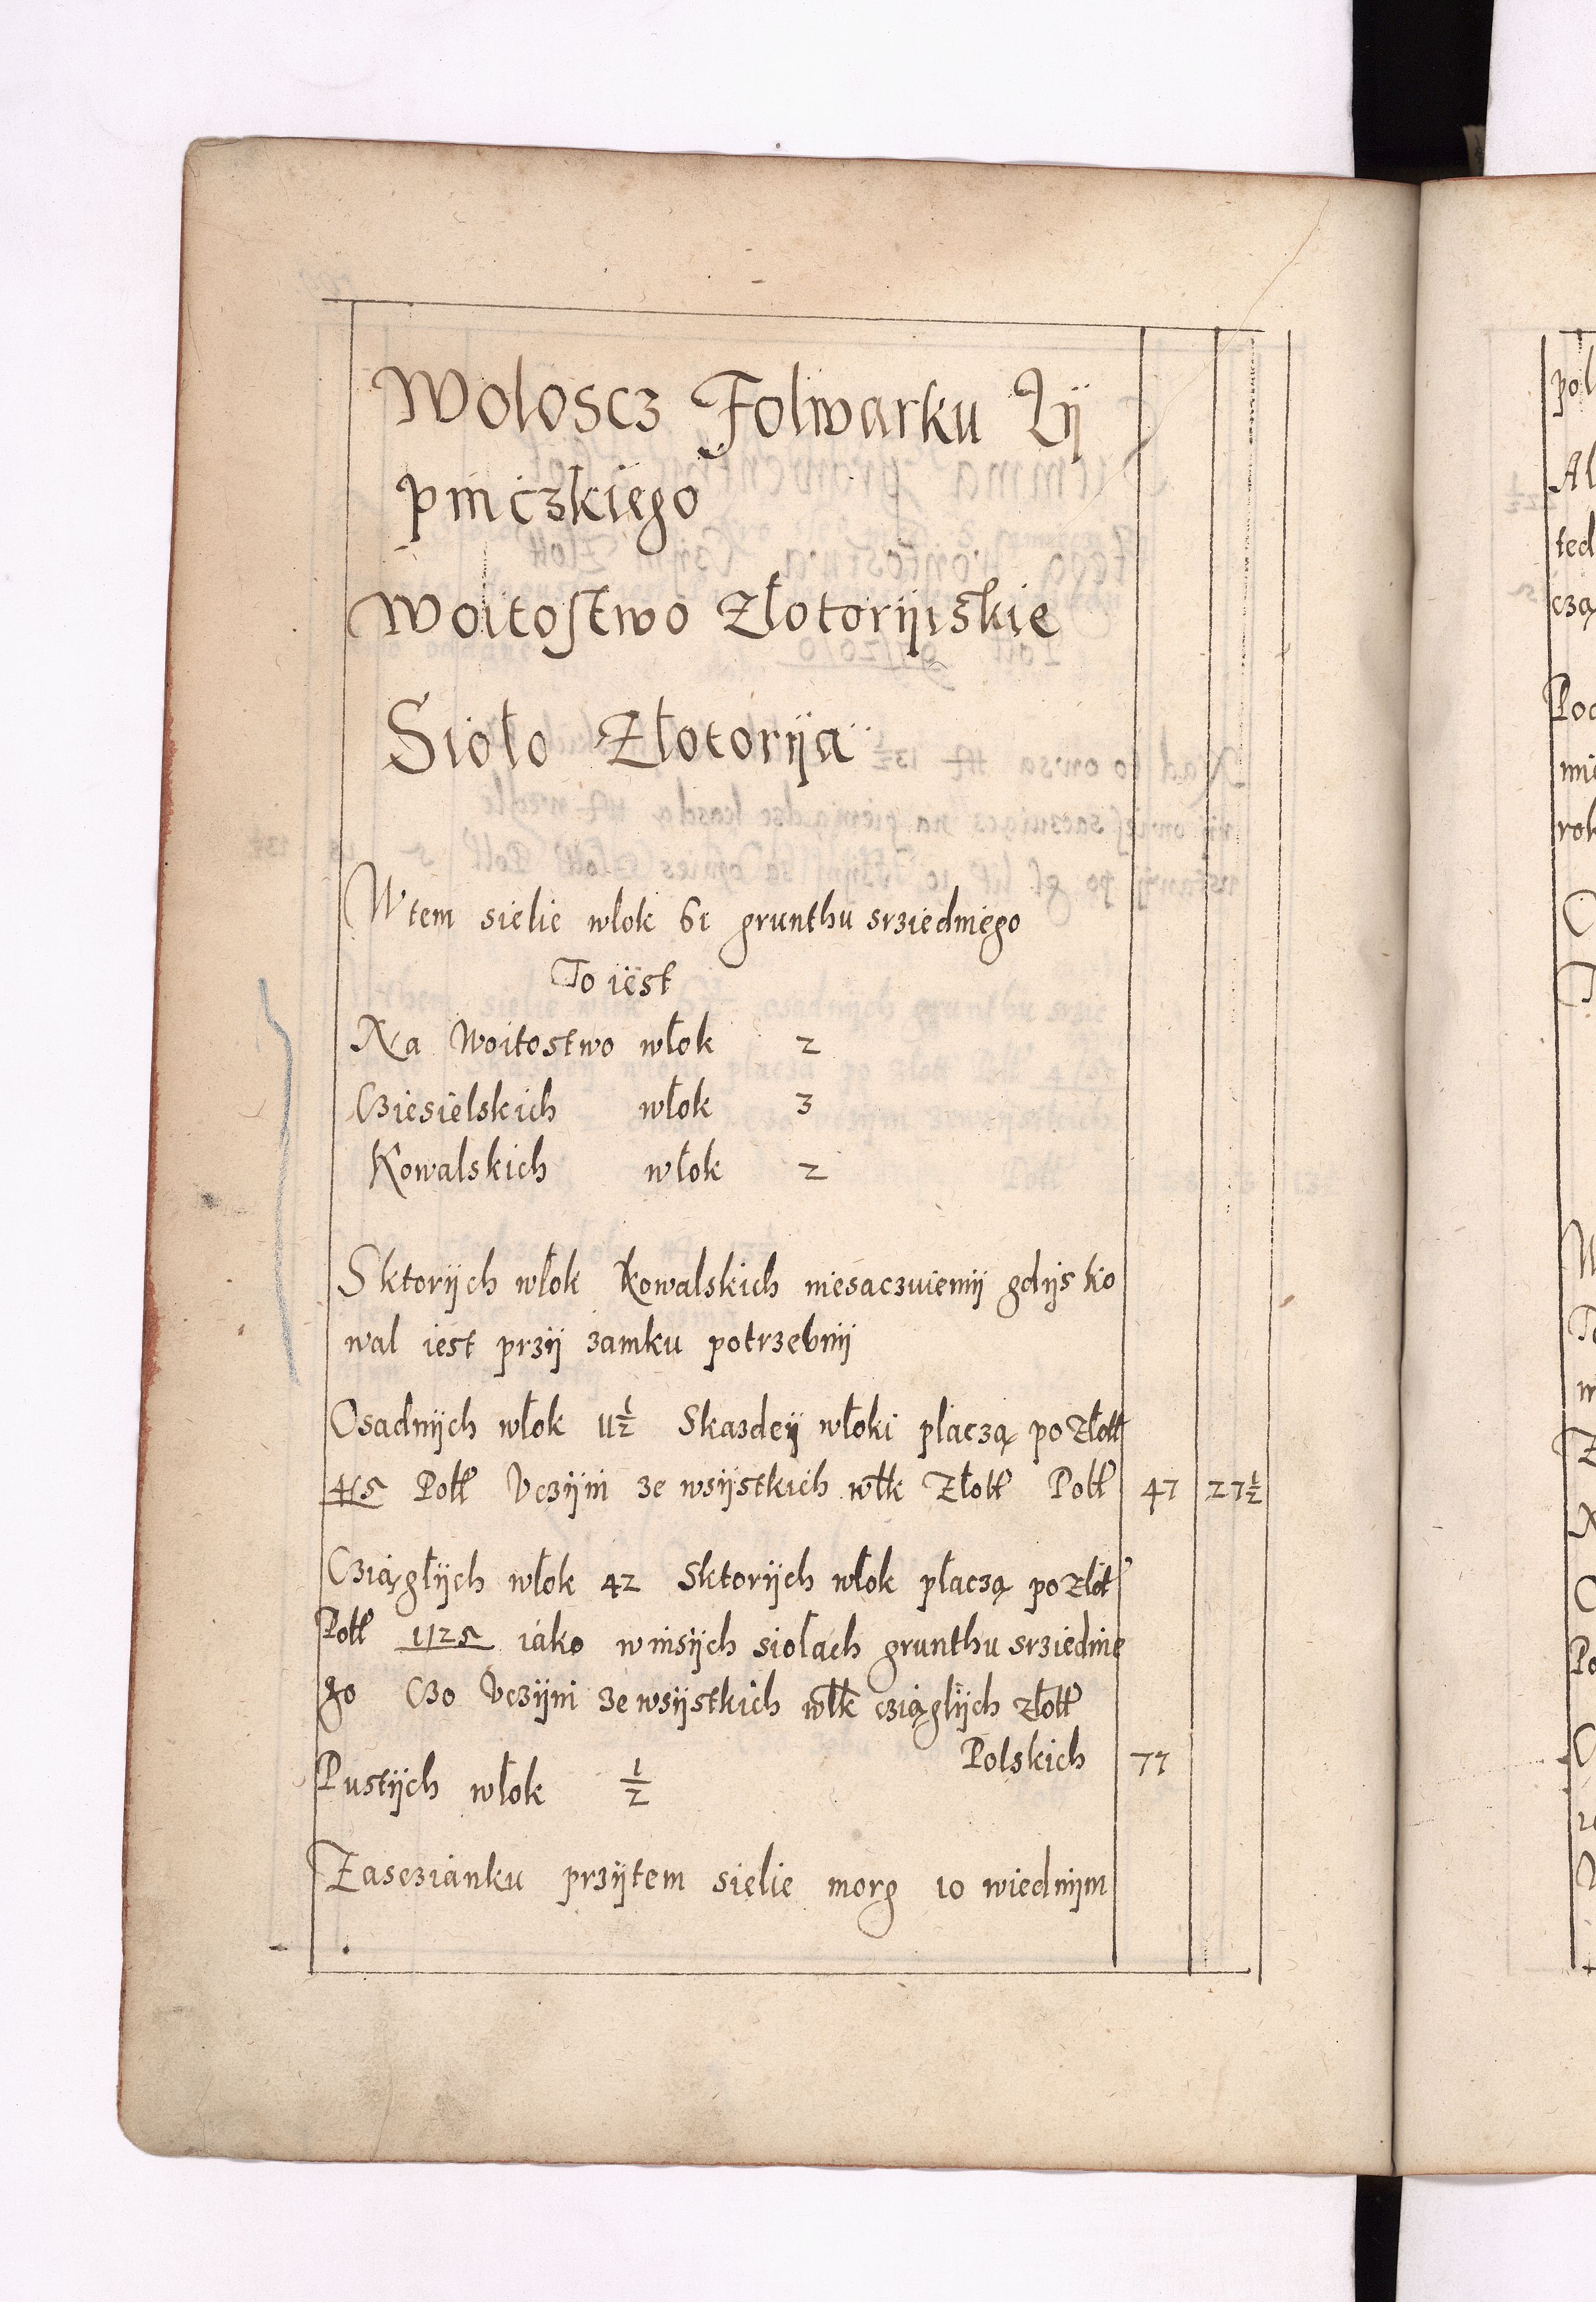 Woloscz Folwarku Lÿ
pniczkiego
Woitostwo Złotorÿiskie
Sioło Złotorÿa
W tem sielie włok 61 grunthu srziedniego
To iest
Na Woitostwo włok 2
Cziesielskich włok 3
Kowalskich włok 2
Sktorÿch włok Kowalskich niesaczuiemÿ gdÿs ko
wal iest przÿ zamku potrzebnÿ
Osadnÿch włok 11½ Skazdeÿ włoki płaczą po złott
4/5 Poll Vczÿni ze wsÿstkich włk Złott Poll 47 27½
Cziągłÿch włok 42 Sktorÿch włok płaczą po złot
Poll 1/25 iako w insÿch siołach grunthu srziednie
go Czo Vczÿni ze wsÿstkich włk cziągłÿch złott
Polskich 77
Pustÿch włok ½
Zasczianku przÿtem sielie morg 10 wiednÿm